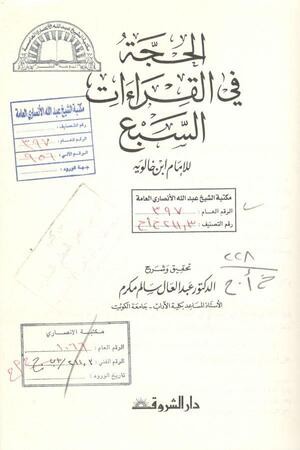 الحجّة
في القراءات
السّبع
للإمام ابن خالويه
مكتبة الشيخ عبد الله الأنصاري العامة
رقم التصنيف :
الرقم العام : ٣٩٧
الرقم الآلي : ٩٥٩
جهة الورود :
مكتبة الشيخ عبد الله الأنصاري العامة
الرقم العام : ٣٩٧
رقم التصنيف :
٢٢٨
تحقيق وشرح
الدكتور عبد العال سالم مكرم
الأستاذ المساعد بكلية الآداب - جامعة الكويت
مكتبة الانصاري
الرقم العام : ١٠٦٦
الرقم الفني :
تاريخ الورود :
دار الشروق